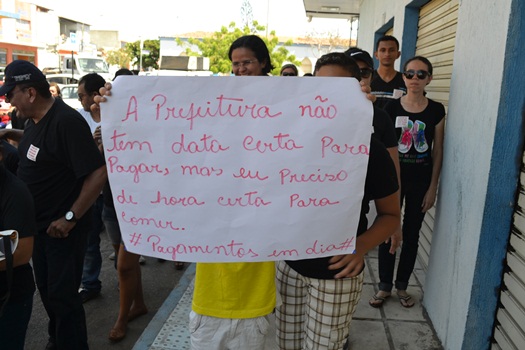 A Prefeitura não
tem data certa para
Pagar, mas eu preciso
de hora certa para
comer.
# Pagamentos em dia#